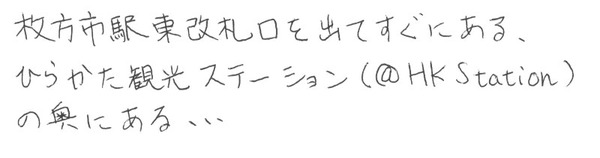 枚方市駅東改札口を出てすぐにある、
ひらかた観光ステーション(@HK Station)
の奥にある、、、